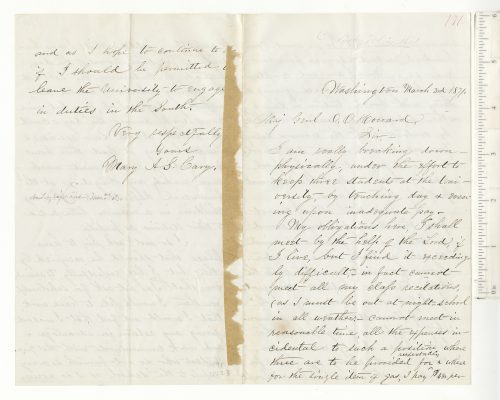 and as I hope to continue to
if I should be permitted
leave the University to engage
in duties in the South.
Very respectfully
Yours
Mary A. S. Cary.
Washington March 3rd 1871.
Maj Genl O. O. Howard,
Sir—
I am really breaking down
physically, under the effort to
keep three students at the Uni-
versity, by teaching day &
ing upon inadequate pay.
My obligations here, I shall
meet by the help of the Lord, if
I live, but I find it exceeding
ly difficult — in fact cannot
meet all my class recitations,
(as I must be out at night-school
in all weather,— cannot meet in
reasonable time, all the expenses in-
cidental to such a position, where
there are to be provided for & where
for the single item of gas, I pay per